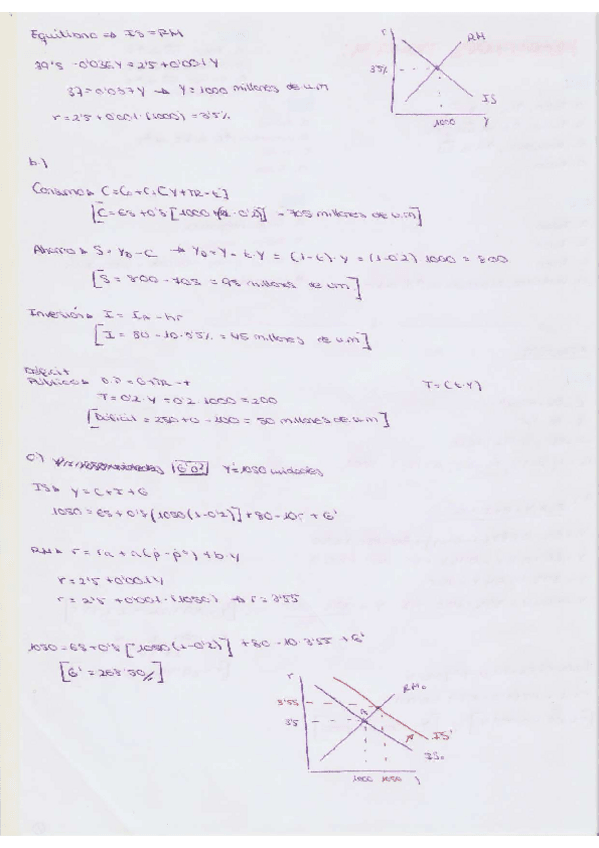 Equilibrio ⇒ IS = RM
39'5 - 0'036Y = 2'5 + 0'001Y
37 = 0'037Y → Y = 1000 millones de u.m
r = 2'5 + 0'001·(1000) = 3'5%
r
RM
3'5%
IS
1000
Y
b.)
Consumo → C =
[C = 65 + 0'8 [1000 ] = 705 millones de u.m]
Ahorro → S = YD - C → YD = Y - t·Y = (1-t)·Y = (1-0'2)·1000 = 800
[S = 800 - 705 = 95 millones de u.m.]
Inversión → I = IA - hr
[I = 80 - 10·3'5% = 45 millones de u.m]
Déficit
Público →
T = (t·Y)
T = 0'2·Y = 0'2·1000 = 200
[Déficit = 250 + 0 - 200 = 50 millones de u.m]
c.) [G'0?] Y = 1050 unidades
IS → Y = C + I + G
1050 = 65 + 0'8 [1050 (1-0'2)] + 80 - 10r + G'
RM → r = ra + a(p - p°) + b·Y
r = 2'5 + 0'001Y
r = 2'5 + 0'001·(1050) → r = 3'55
1050 = 65 + 0'8 [1050 (1-0'2)] + 80 - 10·3'55 + G'
[G' = ]
r
RM₀
3'55
3'5
IS'
IS₀
1000 1050
Y